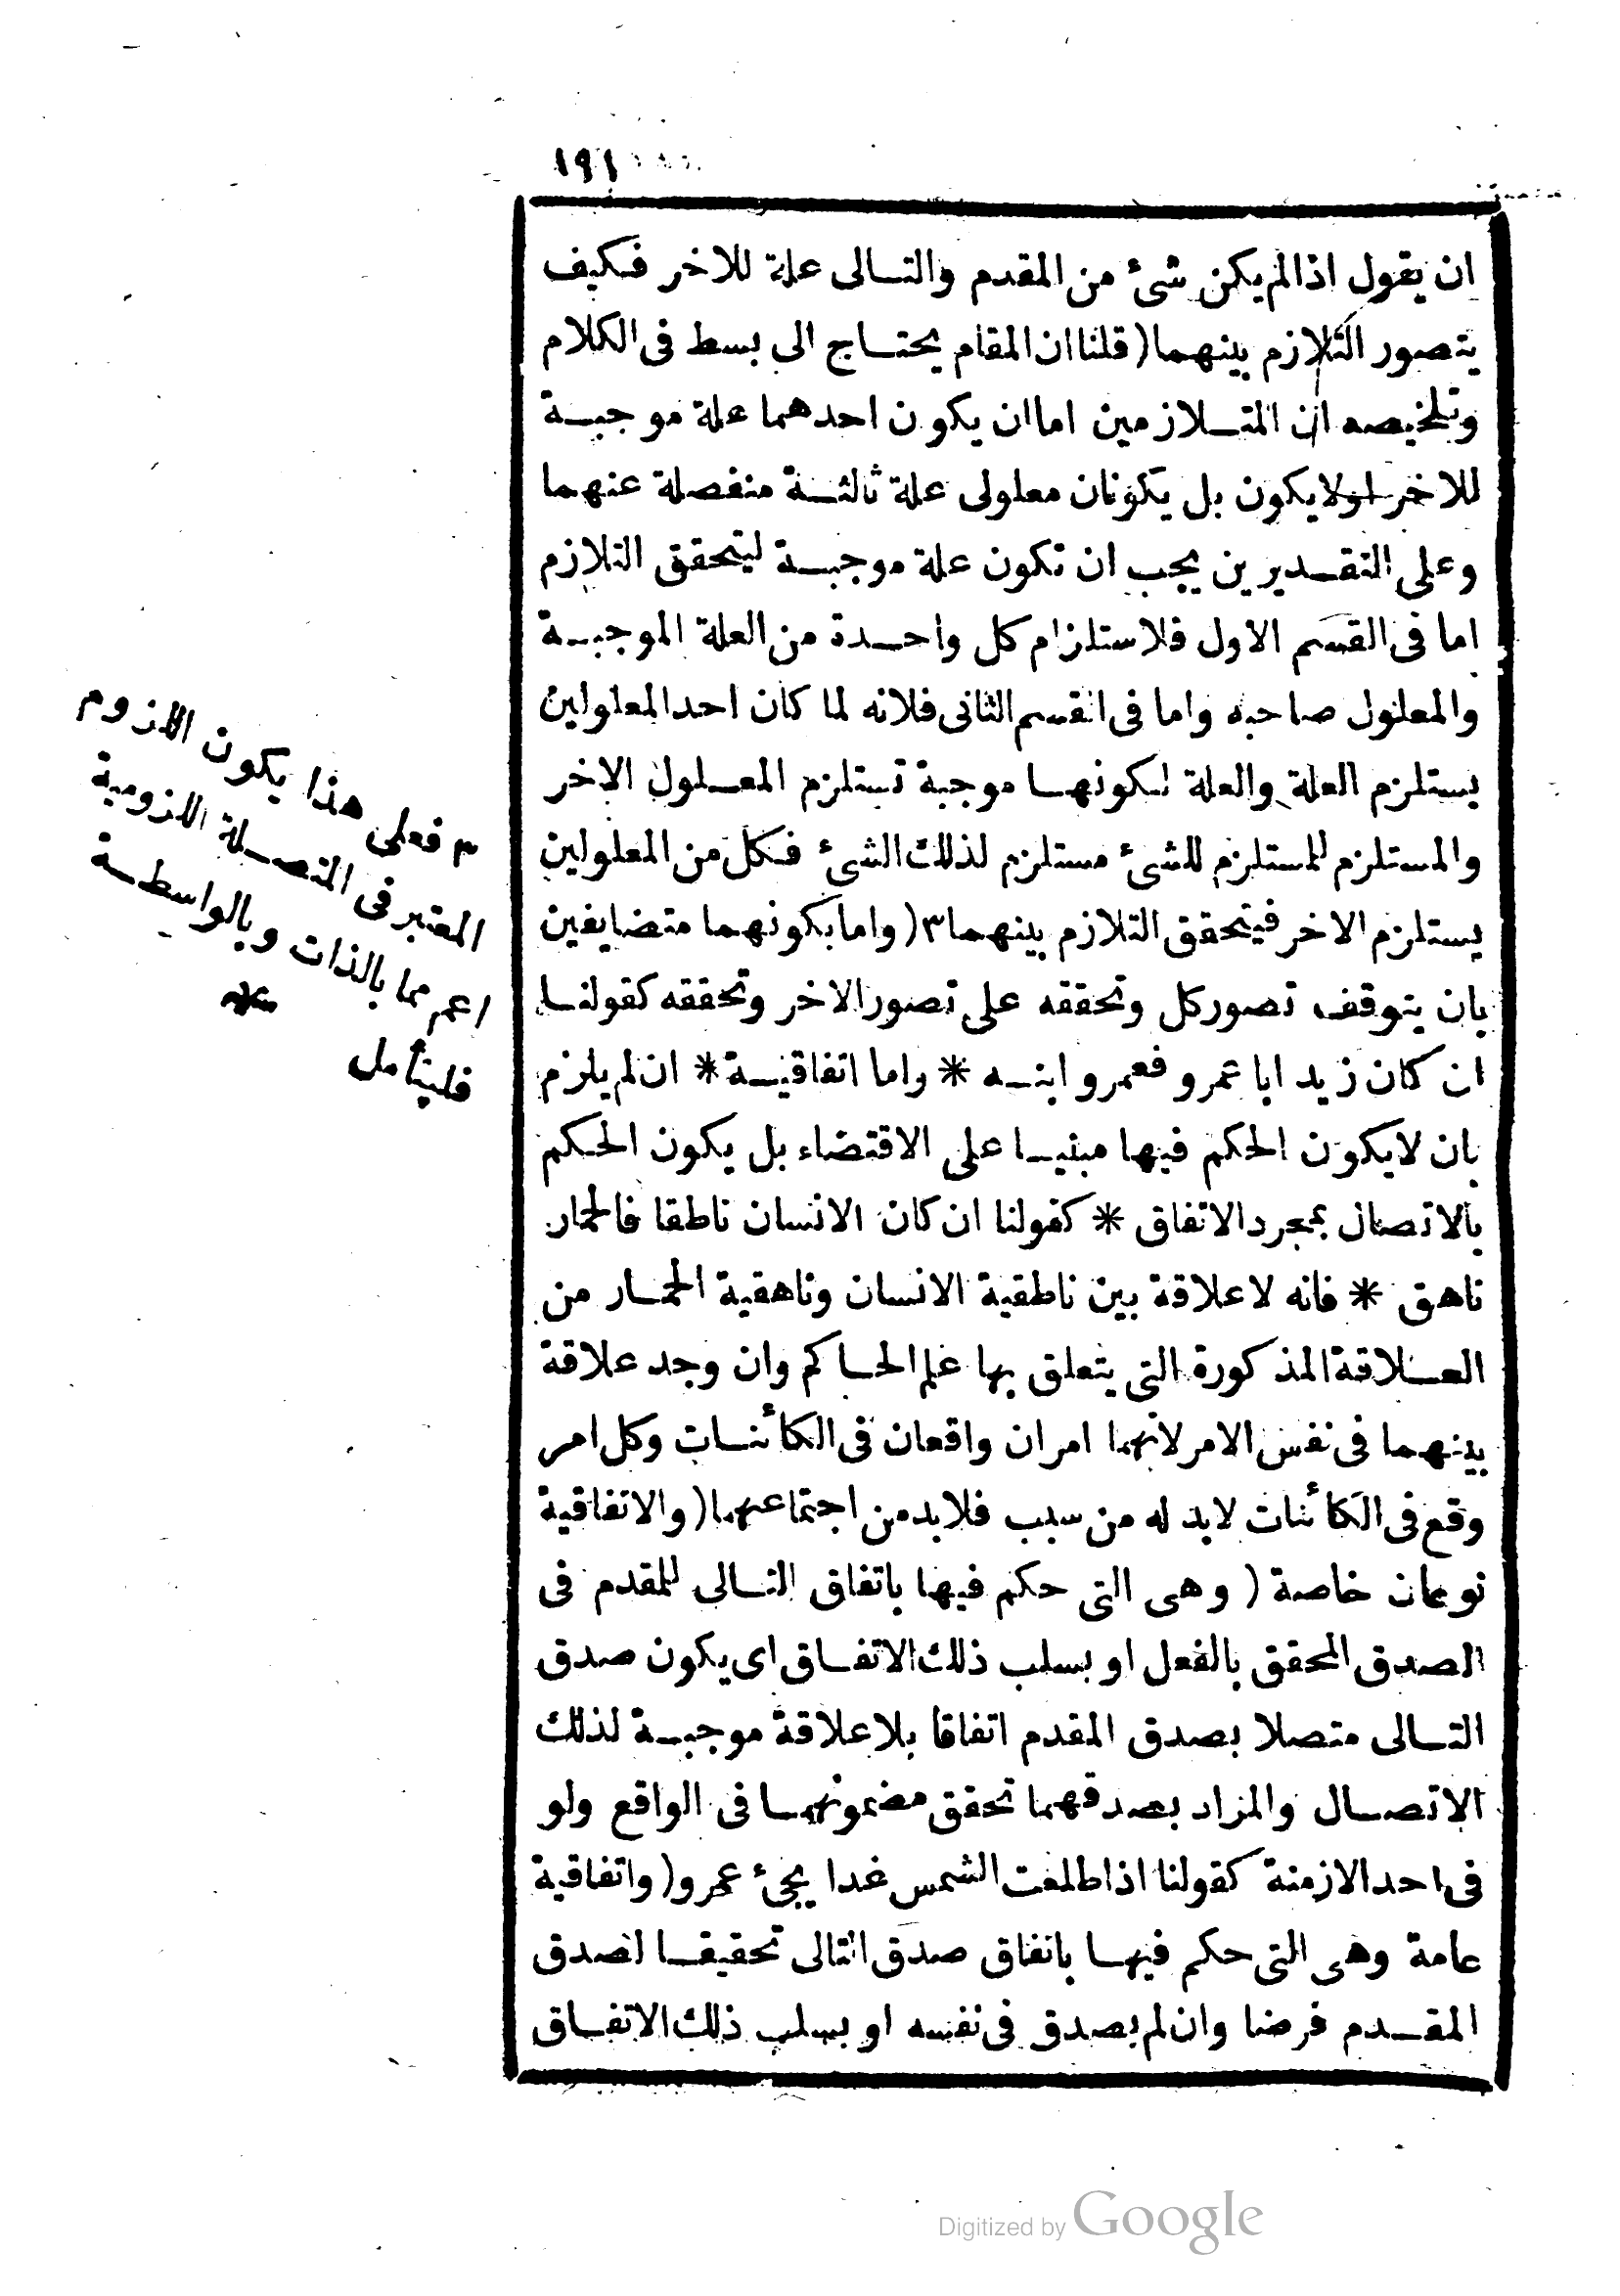 ١٩١
ان يقول اذالم يكن شئ من المقدم والتالى علة للاخر فكيف
يتصور التلازم بينهما ( قلنا ان المقام يحتاج الى بسط فى الكلام
وتلخيصه ان المتلازمين اما ان يكون احدهما علة موجبة
للاخر اولا يكون بل يكونان معلولى علة ثالثة منفصلة عنهما
وعلى التقديرين يجب ان تكون علة موجبة ليتحقق التلازم
اما فى القسم الاول فلاستلزام كل واحدة من العلة الموجبة
والمعلول صاحبه واما فى القسم الثانى فلانه لما كان احد المعلولين
يستلزم العلة والعلة لكونها موجبة تستلزم المعلول الاخر
والمستلزم للمستلزم للشئ مستلزم لذلك الشئ فكل من المعلولين
يستلزم الاخر فيتحقق التلازم بينهما ٣ ( واما بكونهما متضايفين
بان يتوقف تصور كل وتحققه على تصور الاخر وتحققه كقولنا
ان كان زيد ابا عمرو فعمرو ابنه * واما اتفاقية * ان لم يلزم
بان لا يكون الحكم فيها مبنيا على الاقتضاء بل يكون الحكم
بالاتصال بمجرد الاتفاق * كقولنا ان كان الانسان ناطقا فالحمار
ناهق * فانه لا علاقة بين ناطقية الانسان وناهقية الحمار من
العلاقة المذكورة التى يتعلق بها علم الحاكم وان وجد علاقة
بينهما فى نفس الامر لانهما امران واقعان فى الكائنات وكل امر
وقع فى الكائنات لابد له من سبب فلابد من اجتماعهما ( والاتفاقية
نوعان خاصة ( وهى التى حكم فيها باتفاق التالى للمقدم فى
الصدق المحقق بالفعل او بسلب ذلك الاتفاق اى يكون صدق
التالى متصلا بصدق المقدم اتفاقا بلا علاقة موجبة لذلك
الاتصال والمراد بصدقهما تحقق مضمونهما فى الواقع ولو
فى احد الازمنة كقولنا اذا طلعت الشمس غدا يجئ عمرو ( واتفاقية
عامة وهى التى حكم فيها باتفاق صدق التالى تحقيقا لصدق
المقدم فرضا وان لم يصدق فى نفسه او بسلب ذلك الاتفاق
٣ فعلى هذا يكون اللزوم
المعتبر فى المتصلة اللزومية
اعم مما بالذات وبالواسطة
فليتأمل
منه
Digitized by Google